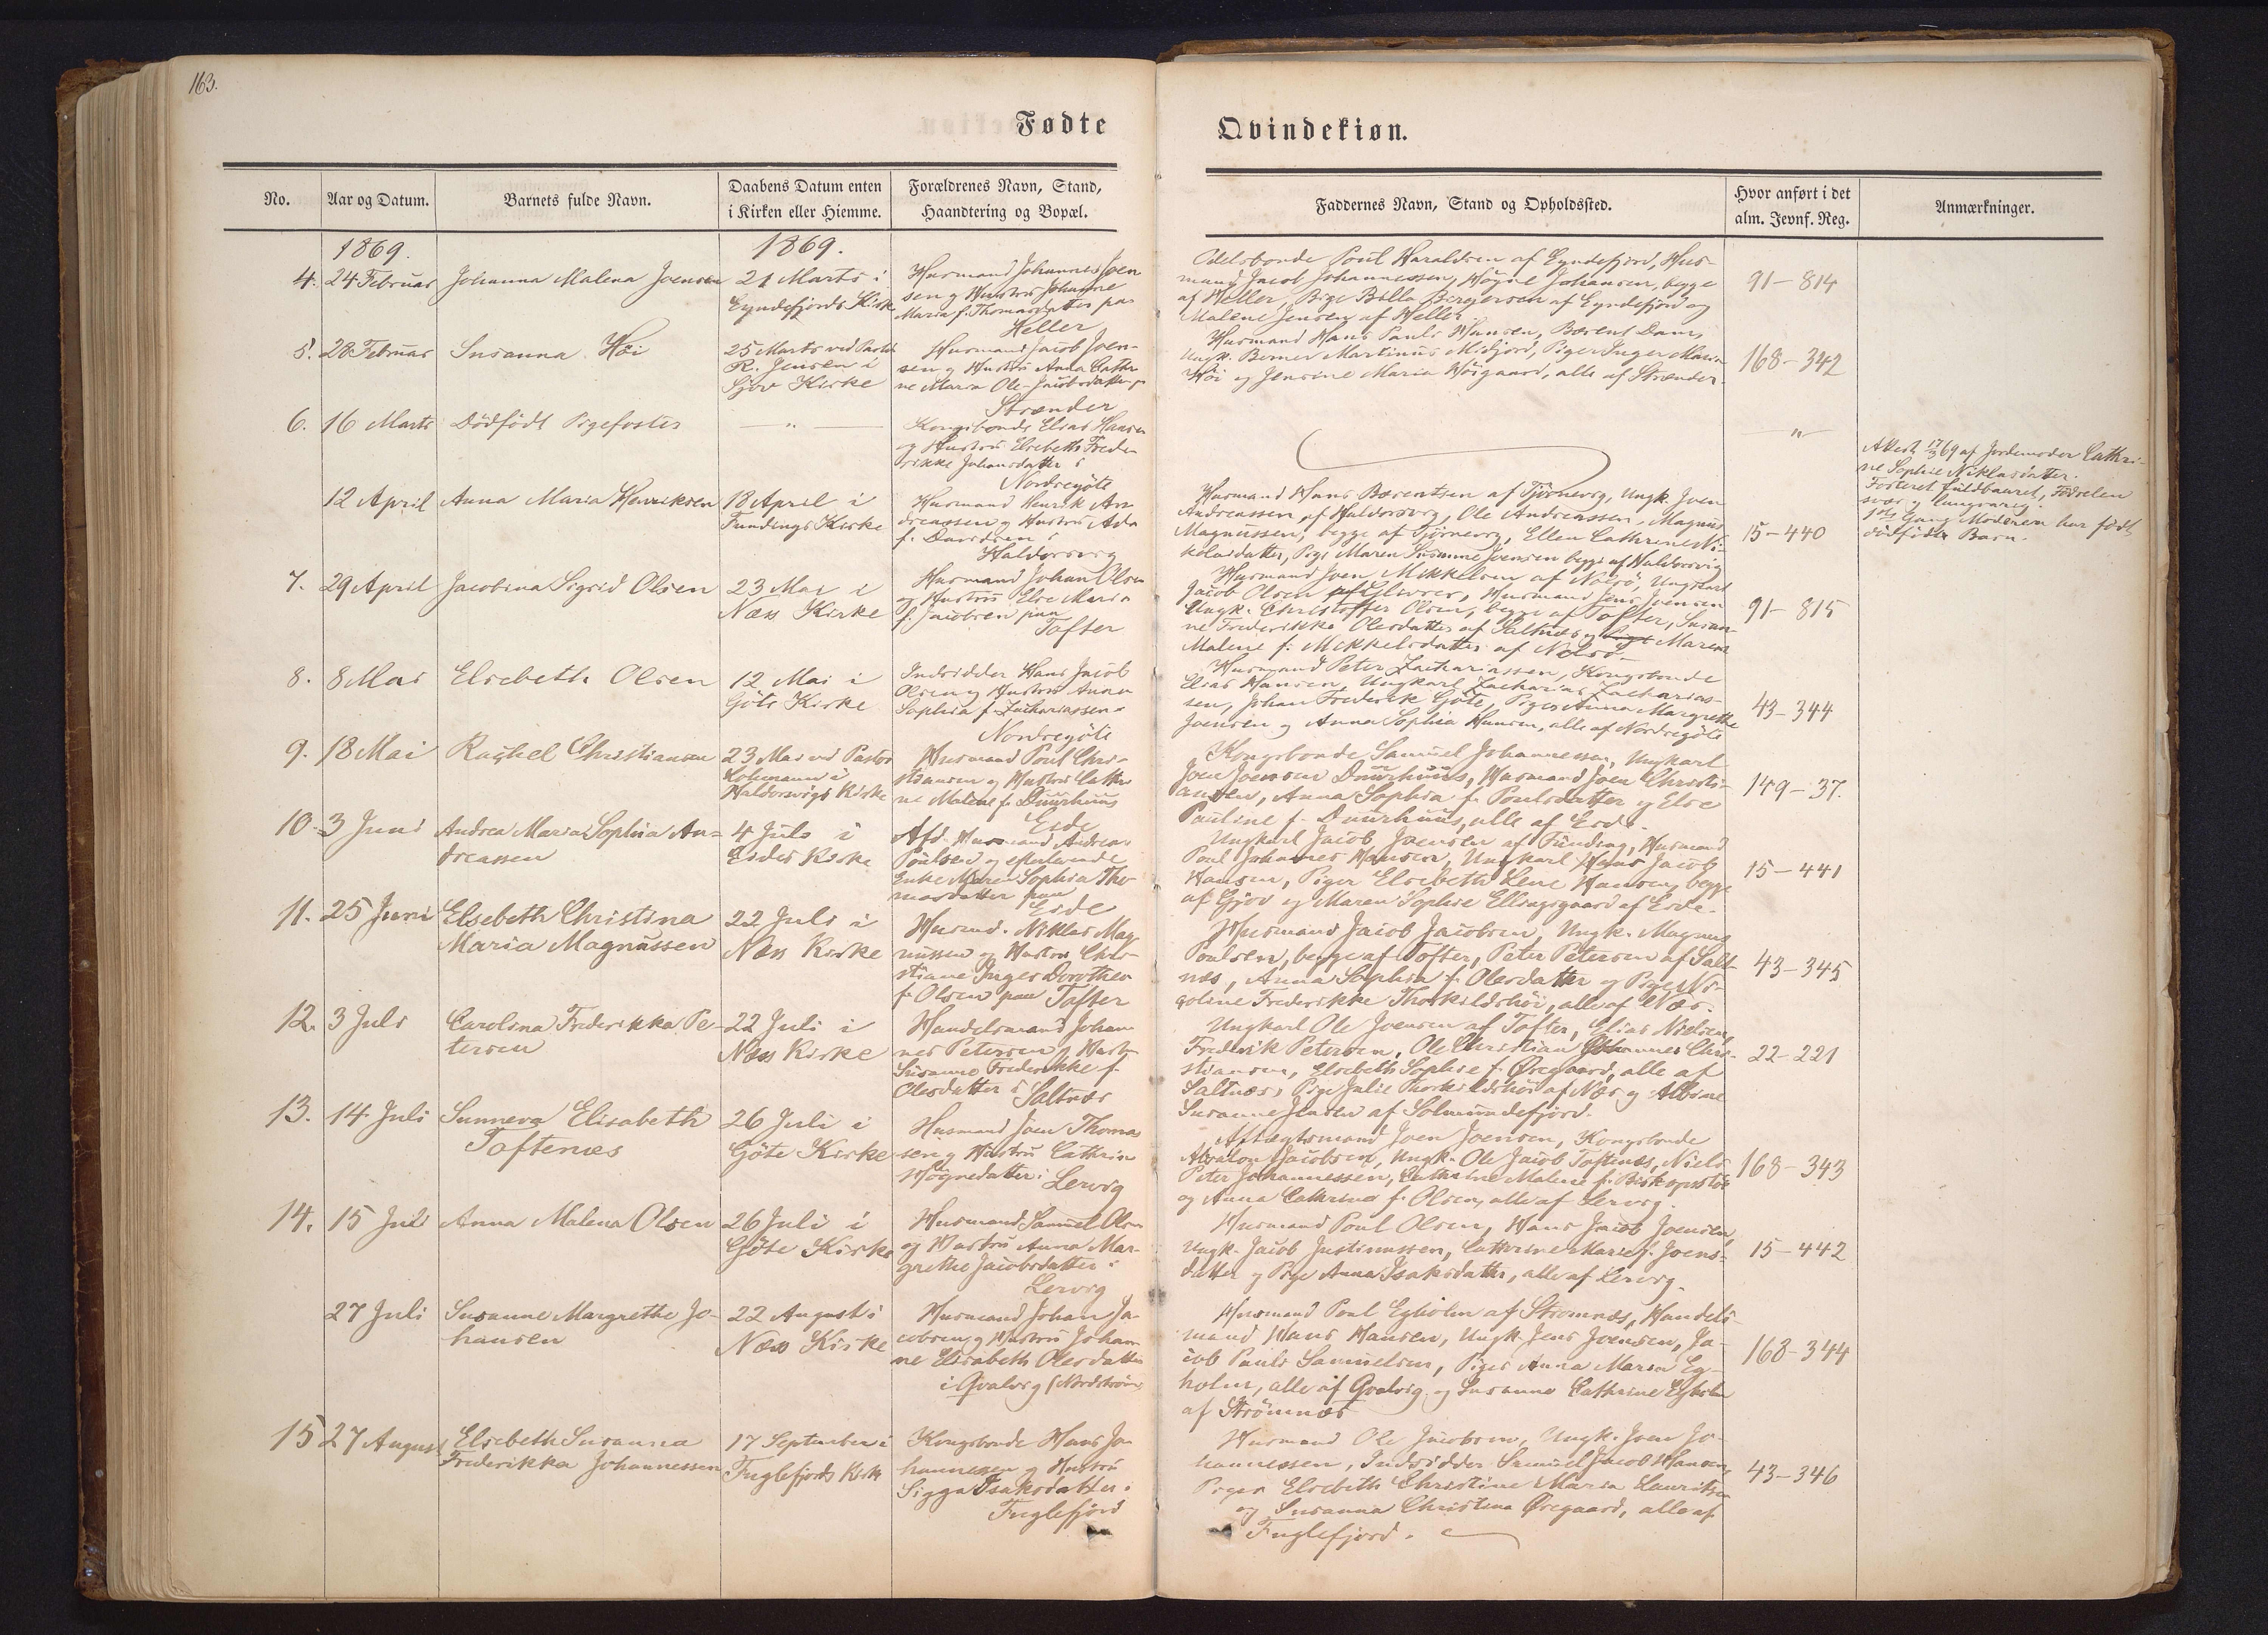 163.
Fødte
Qvindekiøn.
No.
Aar og Datum.
Barnets fulde Navn.
Daabens Datum enten
i Kirken eller Hiemme.
Forældrenes Navn, Stand,
Haandtering og Bopæl.
Faddernes Navn, Stand og Opholdssted.
Hvor anført i det
alm. Jevnf. Reg.
Anmærkninger.
1869.
1869.
4.
24 Februar
Johanna Malena Joensen
21 Marts i
Eyndefjords Kirke
Husmand Johannes Joen
sen og Hustru Johanne
Maria f. Thomasdatter paa
Heller
Odelsbonde Poul Haraldsen af Eyndefjord, Hus-
mand Jacob Johannessen, Høgne Johansen, begge
af Heller, Pige Billa Birgersen af Eyndefjord og
Malene Jensen af Heller.
91-814
5.
28 Februar
Susanna Høi
25 Marts ved Pastor
R. Jensen i
Sjov Kirke
Husmand Jacob Joen-
sen og Hustru Anna Cathr
ne Maria Ole-Jacobsdatter p
Strænder
Husmand Hans Pauli Hansen, Bærent Dam,
Ungk. Berner Martinus Midjord, Piger Inger Maria
Høi og Jensine Maria Høigaard, alle af Strænder.
168-342
6.
16 Marts
Dödfödt Pigefoster
— " —
Kongsbonde Elias Hansen
og Hustru Elsebeth Frede-
rikke Johansdatter i
Nordregöte
— " —
Attest 17/3 69 af Jordemoder Cathri-
ne Sophie Niklasdatter.
Fosteret fuldbaaret, Födselen
svær og langvarig.
1ste Gang Moderen har födt
dödfödte Barn.
12 April
Anna Maria Henriksen
18 April i
Fundings Kirke
Husmand Henrik An-
dreassen og Hustru Ada
f. Davidsen i
Haldorsvig
Husmand Hans Bærentsen af Tjörnevig, Ungk. Joen
Andreassen af Haldorsvig, Ole Andreassen, Magnus
Magnussen, begge af Tjörnevig, Ellen Cathrine Ni-
kolaidatter, Pige Maren Susanne Joensen begge af Haldorsvig
15-440
7.
29 April
Jacobina Sigrid Olsen
23 Mai i
Næs Kirke
Husmand Johan Olsen
og Hustru Else Maria
f. Jacobsen paa
Tofter
Husmand Joen Mikkelsen af Nolsö, Ungkarl
Jacob Olsen af Glivrer, Husmand Jens Joensen
Ungk. Christoffer Olsen, begge af Tofter, Susan-
ne Frederikke Olesdatter af Saltnæs og Maren
Malene f. Mikkelsdatter af Nolsö.
91-815
8.
8 Mai
Elsebeth Olsen
12 Mai i
Göte Kirke
Indsidder Hans Jacob
Olsen og Hustru Anna
Sophia f. Zachariassen i
Nordregöte
Husmand Peter Zachariassen, Kongsbonde
Elias Hansen, Ungkarl Zacharias Zacharias-
sen, Johan Frederik Göte, Piger Anna Margrethe
Joensen og Anna Sophia Hansen, alle af Nordregöte
43-344
9.
18 Mai
Rachel Christiansen
23 Mai ved Pastor
Haldersvigs Kirke
Husmand Poul Chri-
stiansen og Hustru Cathri
ne Malene f. Duurhuus
Eide
Kongsbonde Samuel Johannessen, Ungkarl
Joen Joensen Duurhuus, Husmand Joen Christi-
ansen, Anna Sophia f. Poulsdatter og Else
Pauline f. Duurhuus, alle af Eide.
149-37.
10.
3 Juni
Andrea Maria Sophia An-
dreassen
4 Juli i
Eides Kirke
Afd. Husmand Andreas
Poulsen og efterlevende
Enke Maren Sophia Tho-
masdatter paa
Eide
Ungkarl Jacob Joensen af Funding, Husmand
Poul Johannes Hansen, Ungkarl Hans Jacob
Hansen, Piger Elsebeth Lene Hansen, begge
af Gjov og Maren Sophie Ellingsgaard af Eide.
15-441
11.
25 Juni
Elsebeth Christina
Maria Magnussen
22 Juli i
Næs Kirke
Husmd. Niklas Mag
nussen og Hustru Chri-
stiane Inger Dorothea
f. Olsen paa Tofter
Husmand Jacob Jacobsen, Ungk. Magnus
Poulsen, begge af Tofter, Peter Petersen af Salt-
næs, Anna Sophia f. Olesdatter og Pige Ni-
goline Frederikke Thorkildshöi, alle af Næs.
43-345
12.
3 Juli
Carolina Frederikka Pe-
tersen
22 Juli i
Næs Kirke
Handelsmand Johan-
nes Petersen og Hust.
Susanne Frederikke f.
Olesdatter i Saltnæs
Ungkarl Ole Joensen af Tofter, Elias Nielsen,
Frederik Petersen, Ole Christian Johannes Chri-
stiansen, Elsebeth Sophie f. Øregaard, alle af
Saltnæs, Pige Julie Thorkildshöi af Næs og Albine
Susanne Jensen af Solmundefjord.
22-221
13.
14 Juli
Sunneva Elisabeth
Toftenæs
26 Juli i
Göte Kirke
Husmand Joen Thomas
sen og Hustru Cathrine
Høgnedatter i
Lervig
Aftægtsmand Joen Joensen, Kongsbonde
Absalon Jacobsen, Ungk. Ole Jacob Toftenæs, Niels
Peter Johannessen, Cathrine Malene f. Biskopsstø
og Anna Cathrine f. Olsen, alle af Lervig.
168-343
14.
15 Juli
Anna Malena Olsen
26 Juli i
Göte Kirke
Husmand Samuel Olsen
og Hustru Anna Mar-
grethe Jacobsdatter i
Lervig
Husmand Poul Olsen, Hans Jacob Joensen,
Ungk. Jacob Justinussen, Cathrine Marie f. Joens-
datter og Pige Anna Isaksdatter, alle af Lervig.
15-442
27 Juli
Susanne Margrethe Jo-
hansen
22 August i
Næs Kirke
Husmand Johan Ja-
cobsen og Hustru Johan-
ne Elisabeth Olesdatter
i Qvalvig (Nordströmö)
Husmand Poul Egholm af Strømnæs, Handels-
mand Hans Hansen, Ungk. Jens Joensen, Ja-
cob Pauli Samuelsen, Piger Anna Maria Eg-
holm, alle af Qvalvig og Susanne Cathrine Egholm
af Strömnæs
168-344
15
27 August
Elsebeth Susanna
Frederikka Johannessen
17 September i
Fuglefjords Kirke
Kongsbonde Hans Jo-
hannessen og Hustru
Sigga Isaksdatter i
Fuglefjord
Husmand Ole Jacobsen, Ungk. Joen Jo-
hannessen, Indsidder Samuel Jacob Hansen,
Piger Elsebeth Christine Maria Lauritsen
og Susanna Christina Øregaard, alle af
Fuglefjord.
43-346